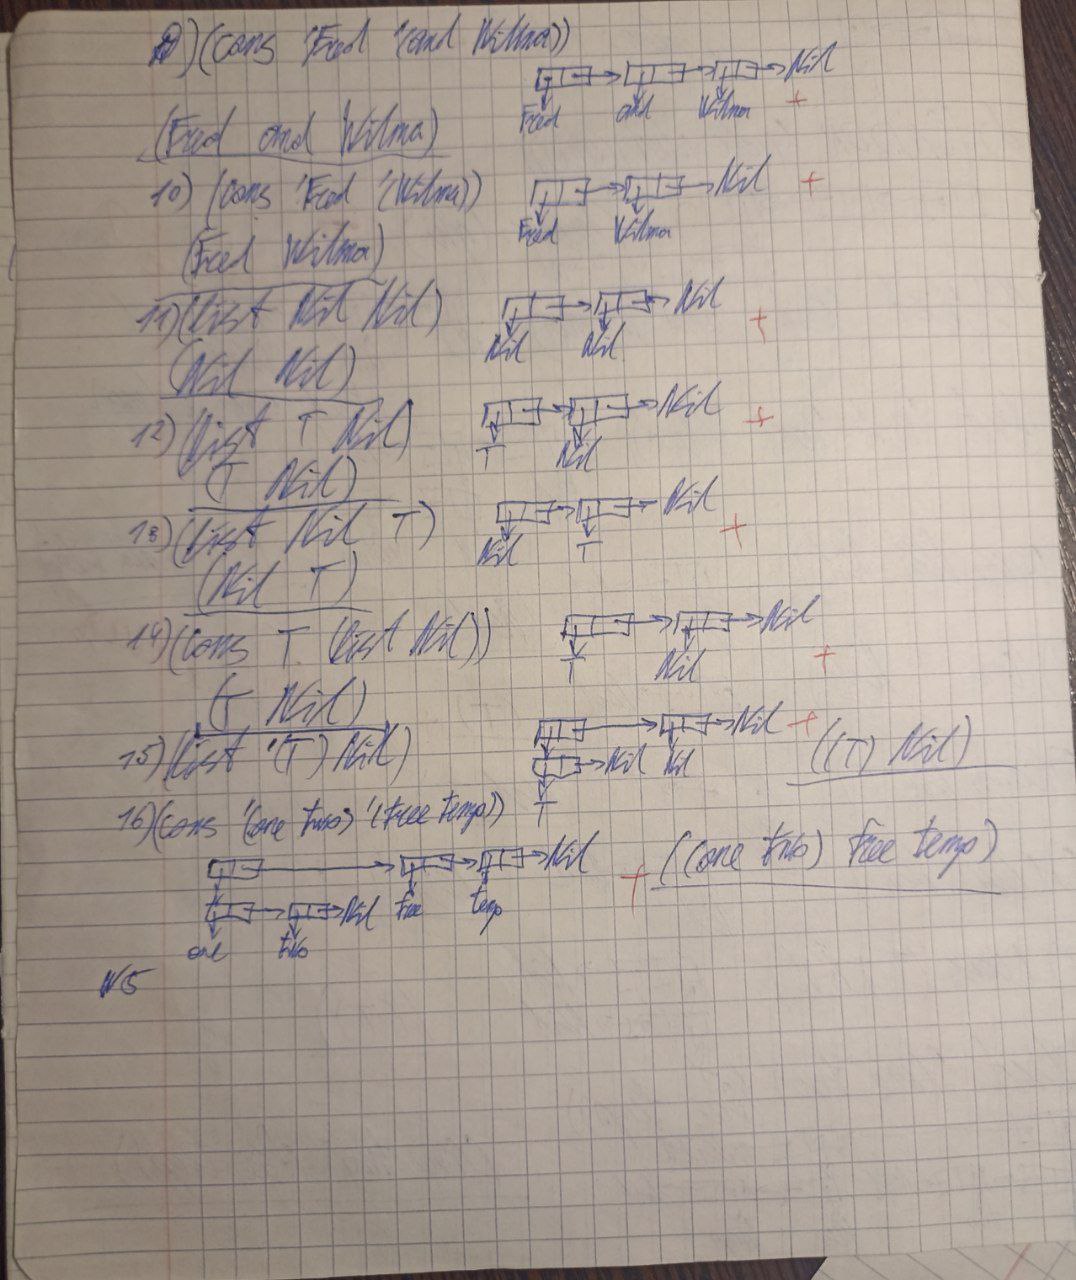 9) (cons 'Fred '(and Wilma))
Nil
Fred and Wilma
+
(Fred and Wilma)
10) (cons 'Fred '(Wilma))
Nil
+
Fred Wilma
(Fred Wilma)
11) (list Nil Nil)
Nil
+
Nil Nil
(Nil Nil)
12) (list T Nil)
Nil
+
T Nil
(T Nil)
13) (list Nil T)
Nil
+
Nil T
(Nil T)
14) (cons T (list Nil))
Nil
+
T Nil
(T Nil)
15) (list '(T) Nil)
Nil
+
((T) Nil)
Nil Nil
T
16) (cons '(one two) '(free temp))
Nil
+
((one two) free temp)
Nil free temp
one two
№5